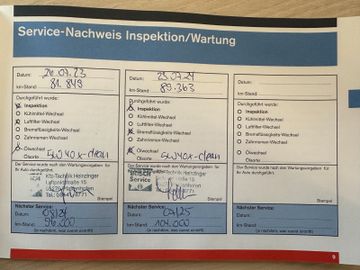 Service-Nachweis Inspektion/Wartung
Datum: 26.07.23
km-Stand: 81.849
Durchgeführt wurde:
Inspektion
Kühlmittel-Wechsel
Luftfilter-Wechsel
Bremsflüssigkeits-Wechsel
Zahnriemen-Wechsel
Ölwechsel
Ölsorte
Der Service wurde nach den Wartungsvorgaben für
Ihr Auto durchgeführt.
Kfz-Technik Heinzinger
Stempel
Nächster Service:
Datum: 08/24
km-Stand: 96.000
(je nachdem, was zuerst eintrifft)
Datum: 25.07.24
km-Stand: 89.363
Durchgeführt wurde:
Inspektion
Kühlmittel-Wechsel
Luftfilter-Wechsel
Bremsflüssigkeits-Wechsel
Zahnriemen-Wechsel
Ölwechsel
Ölsorte
Der Service wurde nach den Wartungsvorgaben für
Ihr Auto durchgeführt.
Service
Kfz-Technik Heinzinger
Stempel
Nächster Service:
Datum: 07/25
km-Stand: 104.000
(je nachdem, was zuerst eintrifft)
Datum:
km-Stand:
Durchgeführt wurde:
Inspektion
Kühlmittel-Wechsel
Luftfilter-Wechsel
Bremsflüssigkeits-Wechsel
Zahnriemen-Wechsel
Ölwechsel
Ölsorte
Der Service wurde nach den Wartungsvorgaben für
Ihr Auto durchgeführt.
Stempel
Nächster Service:
Datum:
km-Stand:
(je nachdem, was zuerst eintrifft)
9